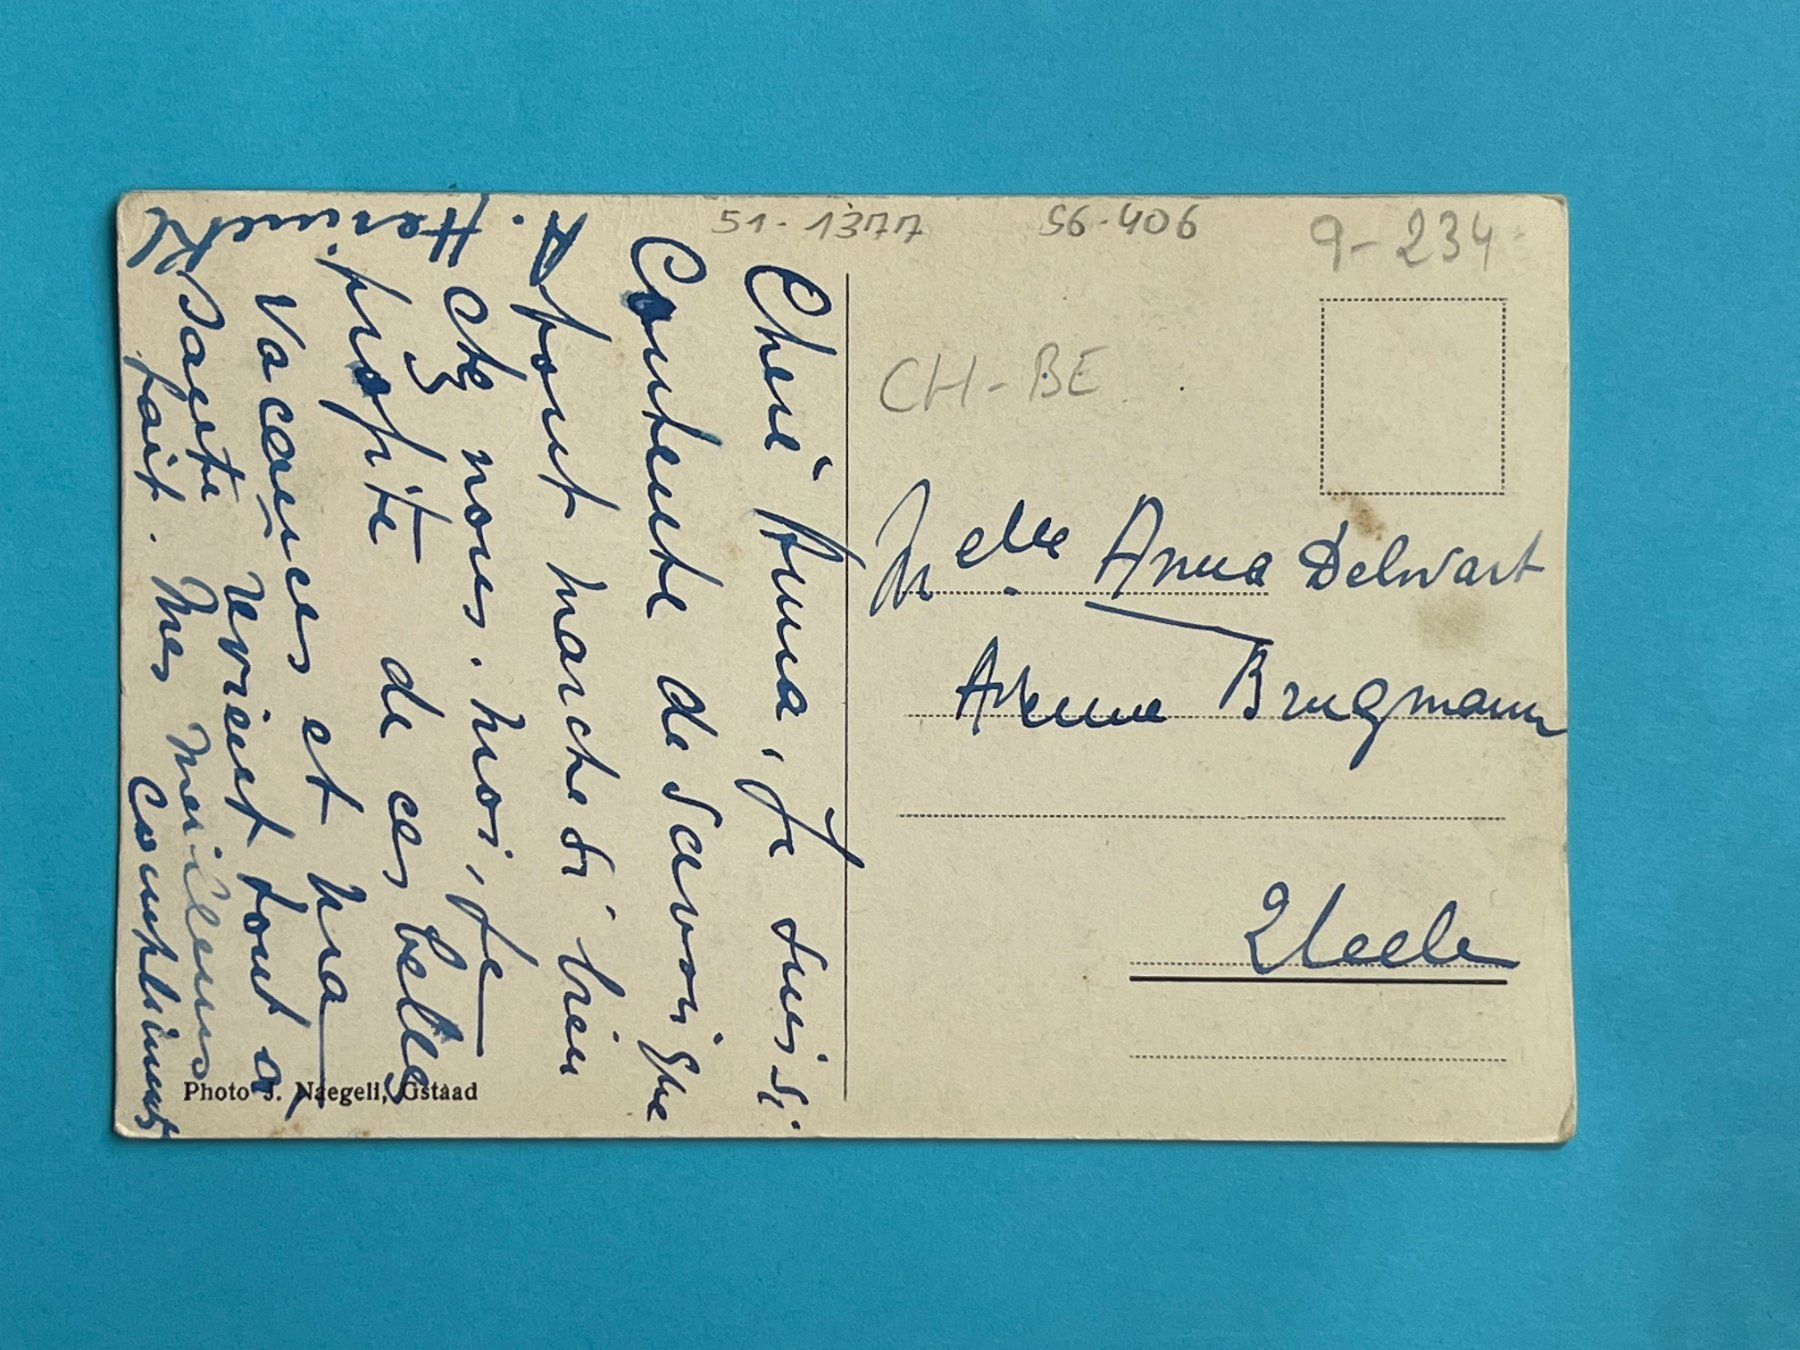 51-1377
56-406
9-234
CH-BE
Melle Anna Delwart
Avenue Brugmann
Uccle
Cheré Anna, Je suis si
Contente de savoir que
tout marche si bien
chez nous. Moi, je
profite de ces belles
vacances et ma
santé revient tout à
fait. Mes meilleurs
Compliments
Photo J. Naegeli, Gstaad